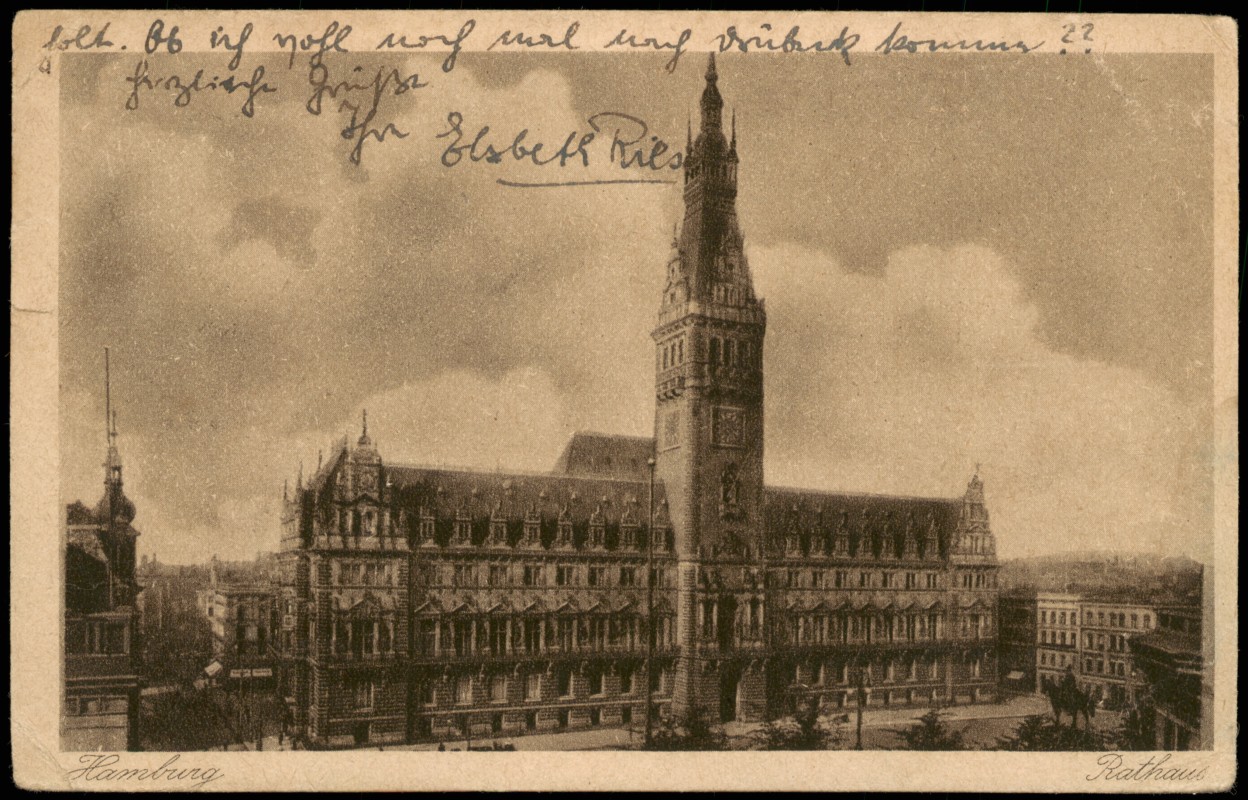 folt. Ob ich wohl noch mal nach Drübeck komme ??
Herzliche Grüße
Ihre Elsbeth Ries
Hamburg
Rathaus